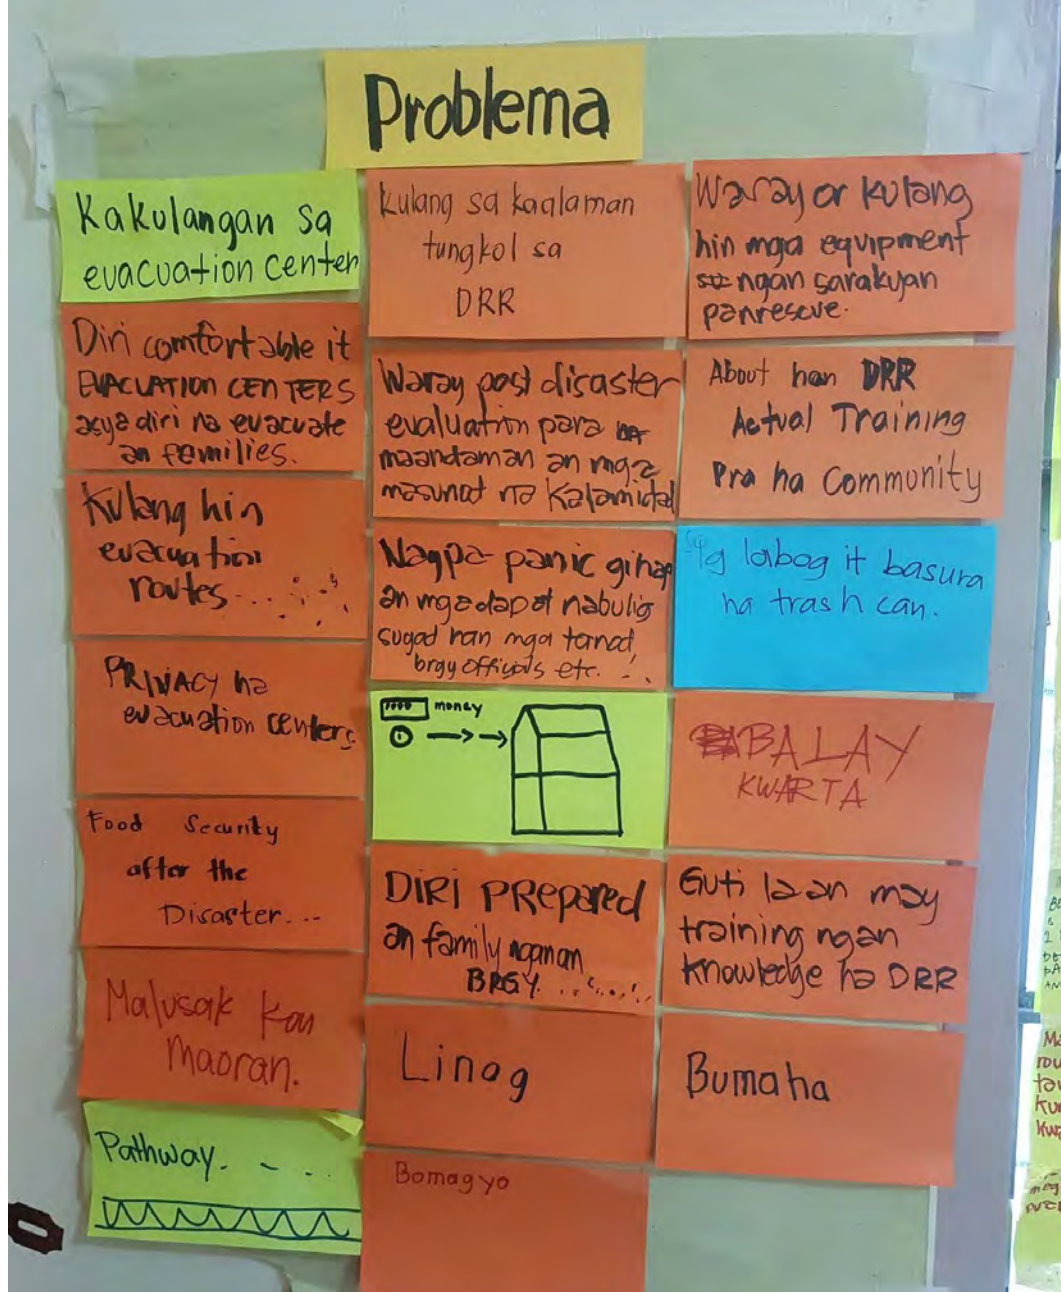 Problema
Kakulangan sa
evacuation center
Diri comfortable it
EVACUATION CENTERS
asya diri na evacuate
an families.
Kulang hin
evacuation
routes...
PRIVACY ha
evacuation centers
Food Security
after the
Disaster...
Malusak kon
maoran.
Pathway. - . . .
Kulang sa kaalaman
tungkol sa
DRR
Waray post disaster
evaluation para
maandaman an mga
masunod na Kalamidad
Nagpa-panic gihap
an mga dapat nabulig
sugad han mga tanod,
brgy officials etc. . .
money
DIRI PREPARED
an family ngan an
BRGY. . .
Linog
Bomagyo
Waray or kulang
hin mga equipment
ngan sarakyan
panrescue.
About han DRR
Actual Training
Pra ha Community
Ig labog it basura
ha trash can.
BALAY
KWARTA
Guti la an may
training ngan
knowledge ha DRR
Bumaha